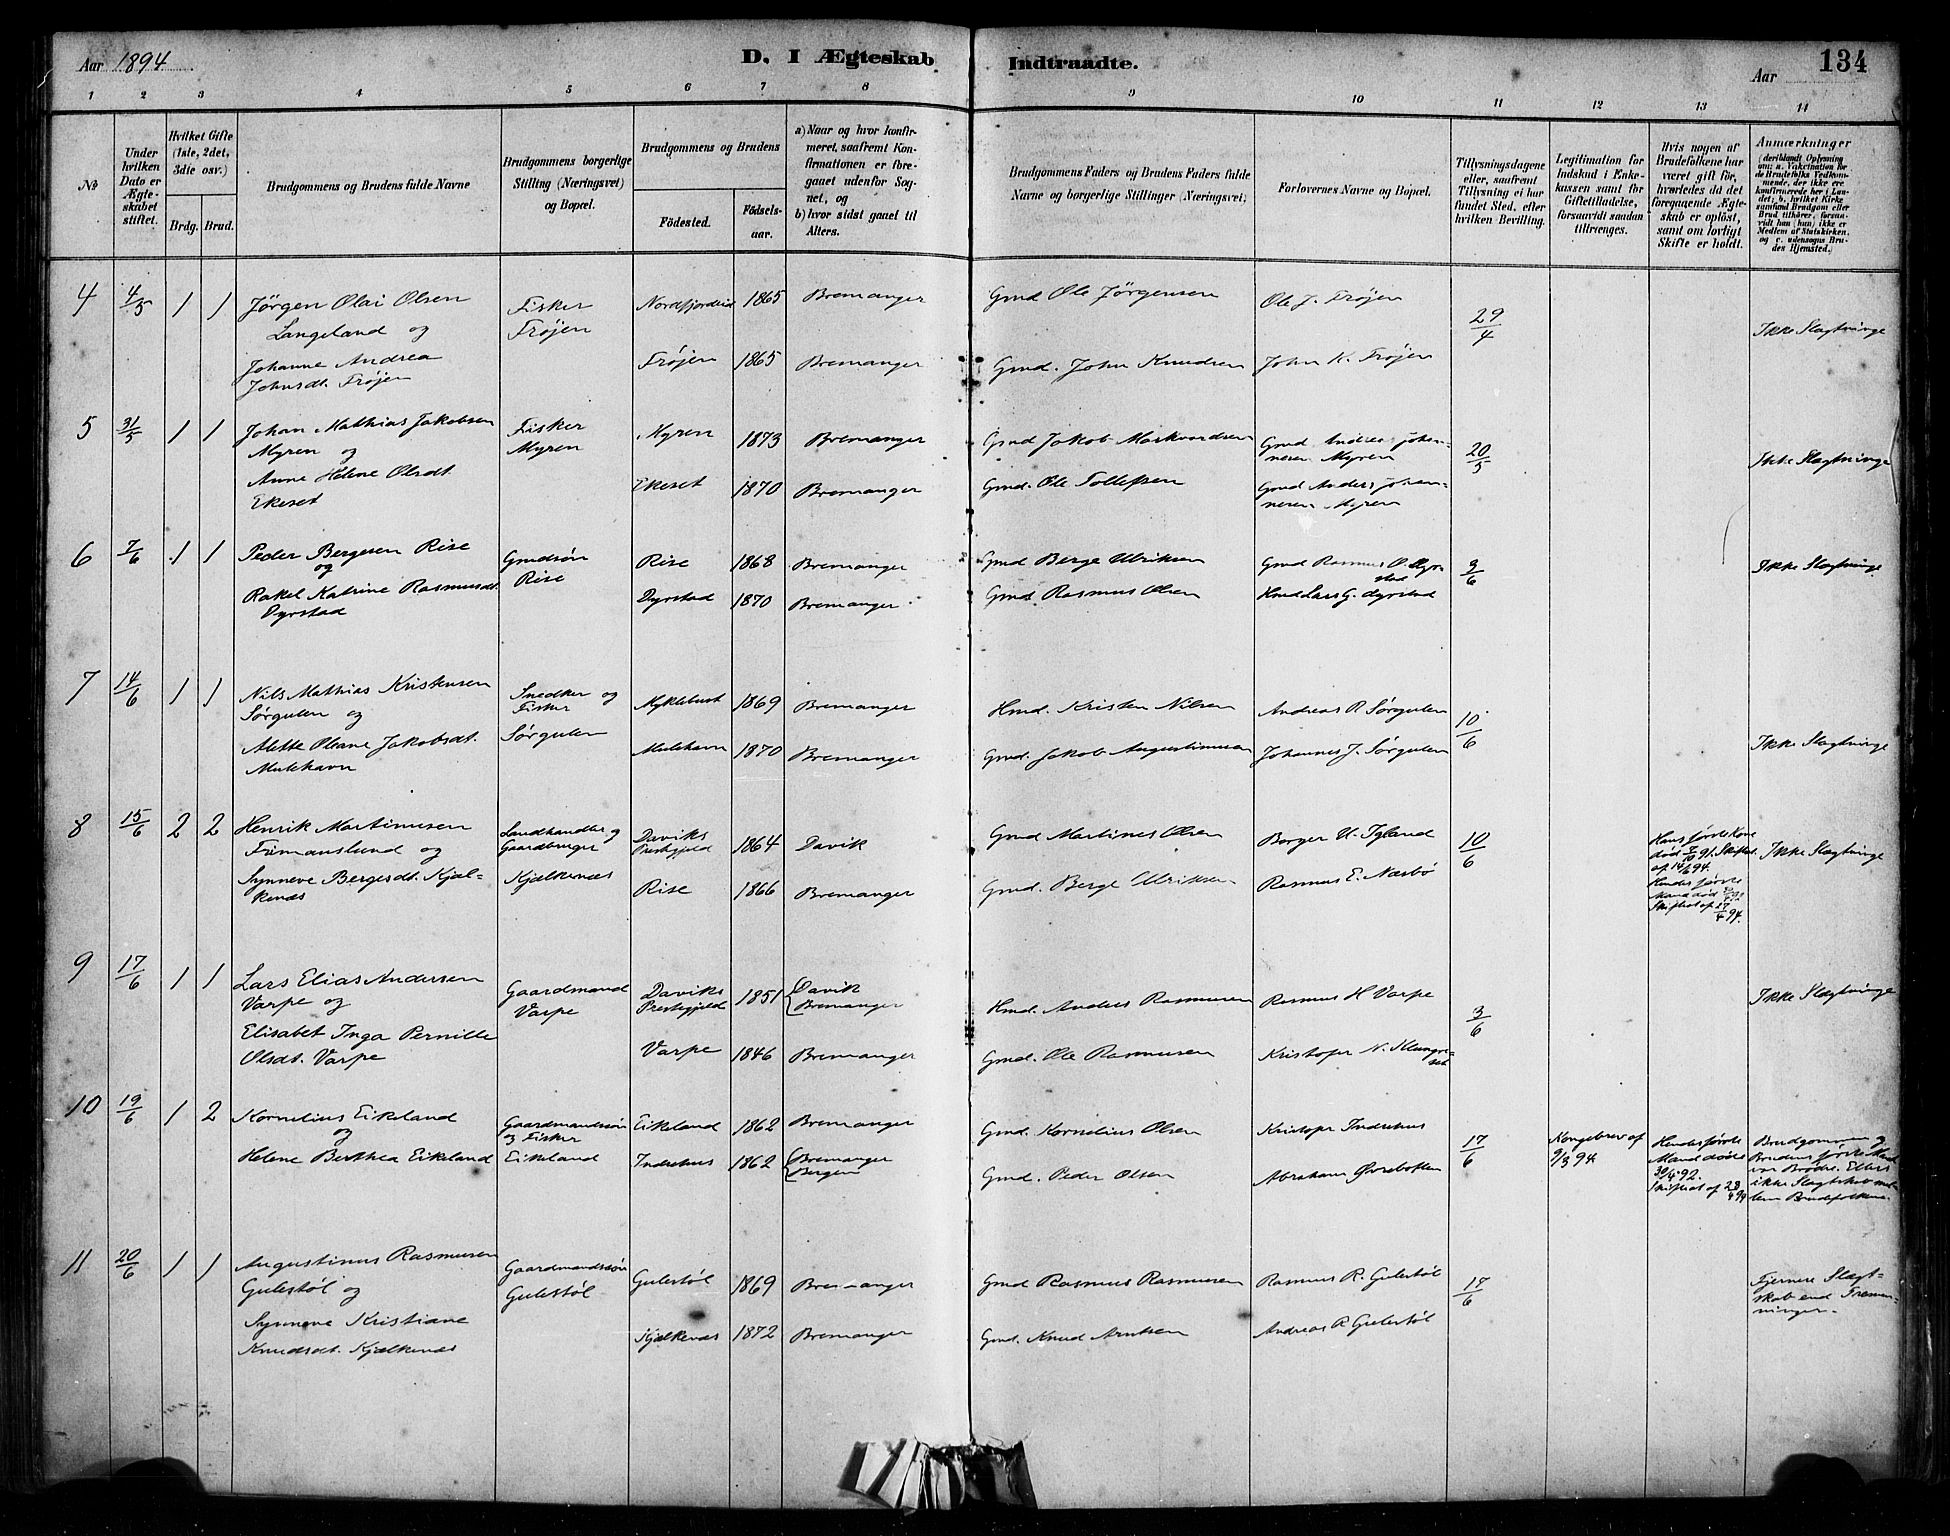 Aar 1894
D. I Ægteskab Indtraadte.
Aar
134
1 2 3 4 5 6 7 8 9 10 11 12 13 14
No
Under hvilken Dato er Ægteskabet stiftet.
Hvilket Gifte (1ste, 2det, 3die osv.)
Brdg. Brud.
Brudgommens og Brudens fulde Navne
Brudgommens borgerlige Stilling (Næringsvei) og Bopæl.
Brudgommens og Brudens
Födested.
Födsels-aar.
a) Naar og hvor konfirmeret, saafremt Konfirmationen er foregaaet udenfor Sognet, og
b) hvor sidst gaaet til Alters.
Brudgommens Faders og Brudens Faders fulde Navne og borgerlige Stillinger (Næringsvei).
Forlovernes Navne og Bopæl.
Tillysningsdagene eller, saafremt Tillysning ei har fundet Sted, efter hvilken Bevilling.
Legitimation for Indskud i Enkekassen samt for Giftetilladelse, forsaavidt saadan tiltrænges.
Hvis nogen af Brudefolkene har været gift før, hvorledes da det foregaaende Ægteskab er oplöst, samt om lovligt Skifte er holdt.
Anmærkninger
(deriblandt Oplysning om: a. Vakcination for de Brudefolks Vedkommende, der ikre ere konfirmerede her i Landet; b. hvilket Kirkesamfund Brudgom eller Brud tilhörer, forsaavidt han (hun) ikke er Medlem af Statskirken, og c. udensogns Brudes Hjemsted.)
4 4/5 1 1 Jörgen Olai Olsen Langeland og Fisker Fröjen Nordfjordeid 1865 Bremanger Gmd Ole Jörgensen Ole J. Fröjen 29/4 Ikke Slægtninge
Johanne Andrea Johnsdt. Fröjen Fröjen 1865 Bremanger Gmd. John Knudsen John K. Fröjen
5 31/5 1 1 Johan Mathias Jakobsen Myren og Fisker Myren Myren 1873 Bremanger Gmd Jakob Markvardsen Gmd Anders Johannesen Myren 20/5 Ikke Slægtninge
Anne Helene Olsdt. Ekeset Ekeset 1870 Bremanger Gmd. Ole Tollefsen Gmd Anders Johannesen Myren
6 7/6 1 1 Peder Bergesen Rise og Gmdsön Rise Rise 1868 Bremanger Gmd Berge Ulriksen Gmd Rasmus O. Dyrstad 3/6 Ikke Slægtninge
Rakel Katrine Rasmusdt. Dyrstad Dyrstad 1870 Bremanger Gmd Rasmus Olsen Hmd Lars G. Dyrstad
7 14/6 1 1 Nils Mathias Kristensen Sörgulen og Snedker og Fisker Sörgulen Myklebust 1869 Bremanger Hmd. Kristen Nilsen Andreas R Sörgulen 10/6 Ikke Slægtninge
Alette Oleane Jakobsdt. Mulehavn Mulehavn 1870 Bremanger Gmd. Jakob Augustinusen Johannes J. Sörgulen
8 15/6 2 2 Henrik Martinusen Frimanslund og Landhandler og Gaardbruger Kjælkenæs Daviks Prestegjeld 1864 Davik Gmd Martines Olsen Borger U. Igland 10/6 Hans förste Kone död 7/10 91. Skifteat. af 14/6 94. Ikke Slægtninge
Synneve Bergesdt. Kjælkenæs Rise 1866 Bremanger Gmd. Berge Ulriksen Rasmus E. Næsbö Hendes förste Mand död Skifteat af 27/4 94.
9 17/6 1 1 Lars Elias Andersen Varpe og Gaardmand Varpe Daviks Prestegjeld 1851 Davik Bremanger Hmd. Anders Rasmusen Rasmus H Varpe 3/6 Ikke Slægtninge
Elisabet Inga Pernille Olsdt. Varpe Varpe 1846 Bremanger Gmd. Ole Rasmusen Kristofer N. Klungreset
10 19/6 1 2 Kornelius Eikeland og Gaardmandssön og Fisker Eikeland Eikeland 1862 Bremanger Gmd. Kornelius Olsen Kristofer Indrehus 17/6 Kongebrev af 9/3 94 Hendes förste Mand döde 30/4 92. Skifteat af 28/4 94 Brudgommen og Brudens förste Mand var Brödre. Ellers ikke Slægtskab mellem Brudefolkene.
Helene Berthea Eikeland Indrehus 1862 Bremanger Bergen Gmd. Peder Olsen Abraham Övrebotten
11 20/6 1 1 Augustinus Rasmusen Gulestöl og Gaardmandssön Gulestöl Gulestöl 1869 Bremanger Gmd Rasmus Rasmusen Rasmus R. Gulestöl 17/6 Fjernere Slægtskab end Fremenninger.
Synneve Kristiane Knudsdt. Kjælkenæs Kjælkenæs 1872 Bremanger Gmd. Knud Arntsen Andreas R Gulestöl